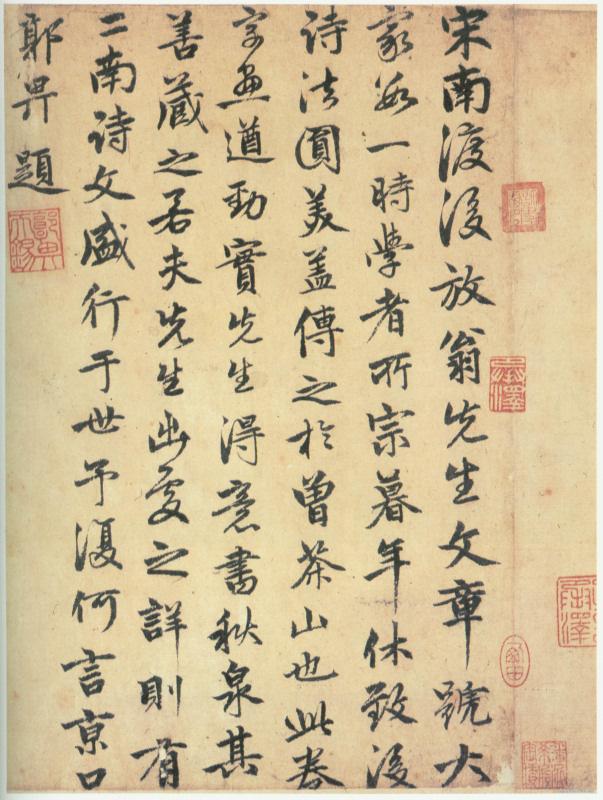 宋南渡後放翁先生文章號大
家爲一時學者所宗暮年休致後
詩法圓美蓋傳之於曾茶山也此卷
字畫遒勁實先生得意書秋泉其
善藏之若夫先生出處之詳則有
二南詩文盛行于世予復何言京口
郭畀題